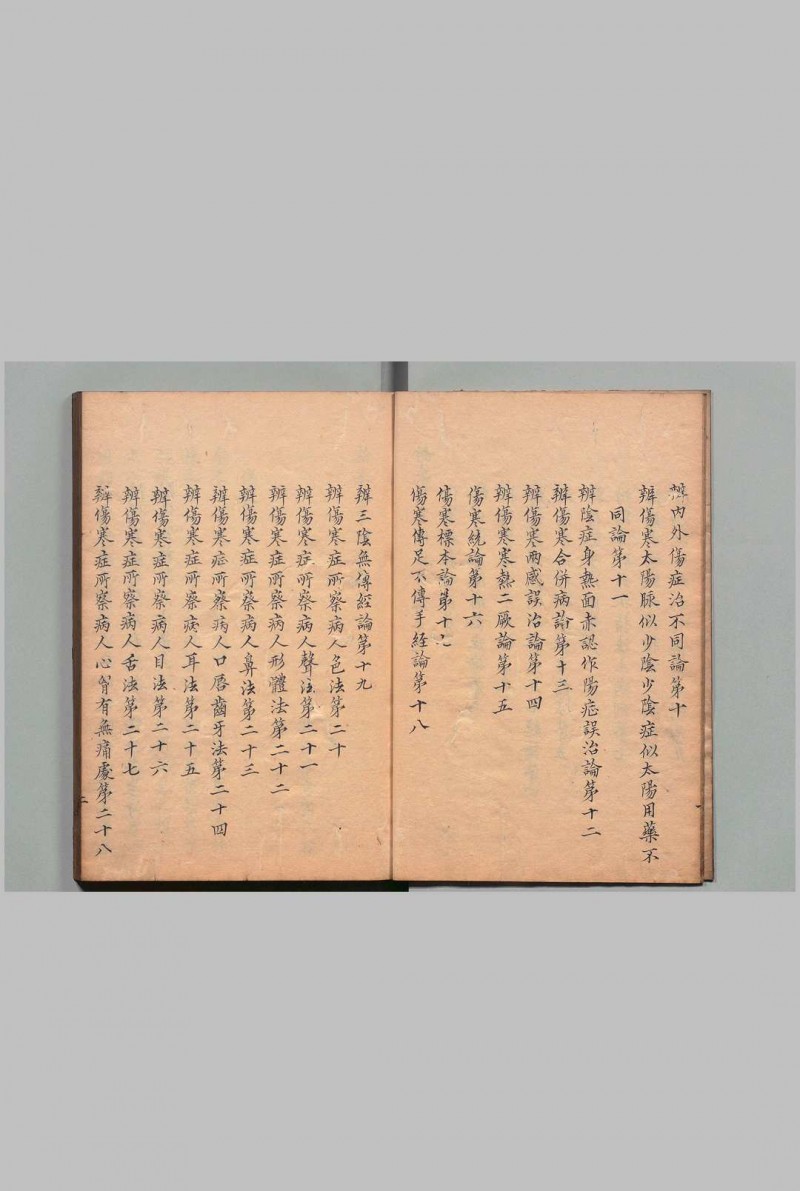 辨內外傷症治不同論第十
辨傷寒太陽脉似少陰少陰症似太陽用藥不
同論第十一
辨陰症身熱面赤認作陽症誤治論第十二
辨傷寒合併病論第十三
辨傷寒兩感誤治論第十四
辨傷寒寒熱二厥論第十五
傷寒統論第十六
傷寒標本論第十七
傷寒傳足不傳手經論第十八
辨三陰無傳經論第十九
辨傷寒症所察病人色法第二十
辨傷寒症所察病人聲法第二十一
辨傷寒症所察病人形體法第二十二
辨傷寒症所察病人鼻法第二十三
辨傷寒症所察病人口唇齒牙法第二十四
辨傷寒症所察病人耳法第二十五
辨傷寒症所察病人目法第二十六
辨傷寒症所察病人舌法第二十七
辨傷寒症所察病人心胷有無痛處第二十八
二